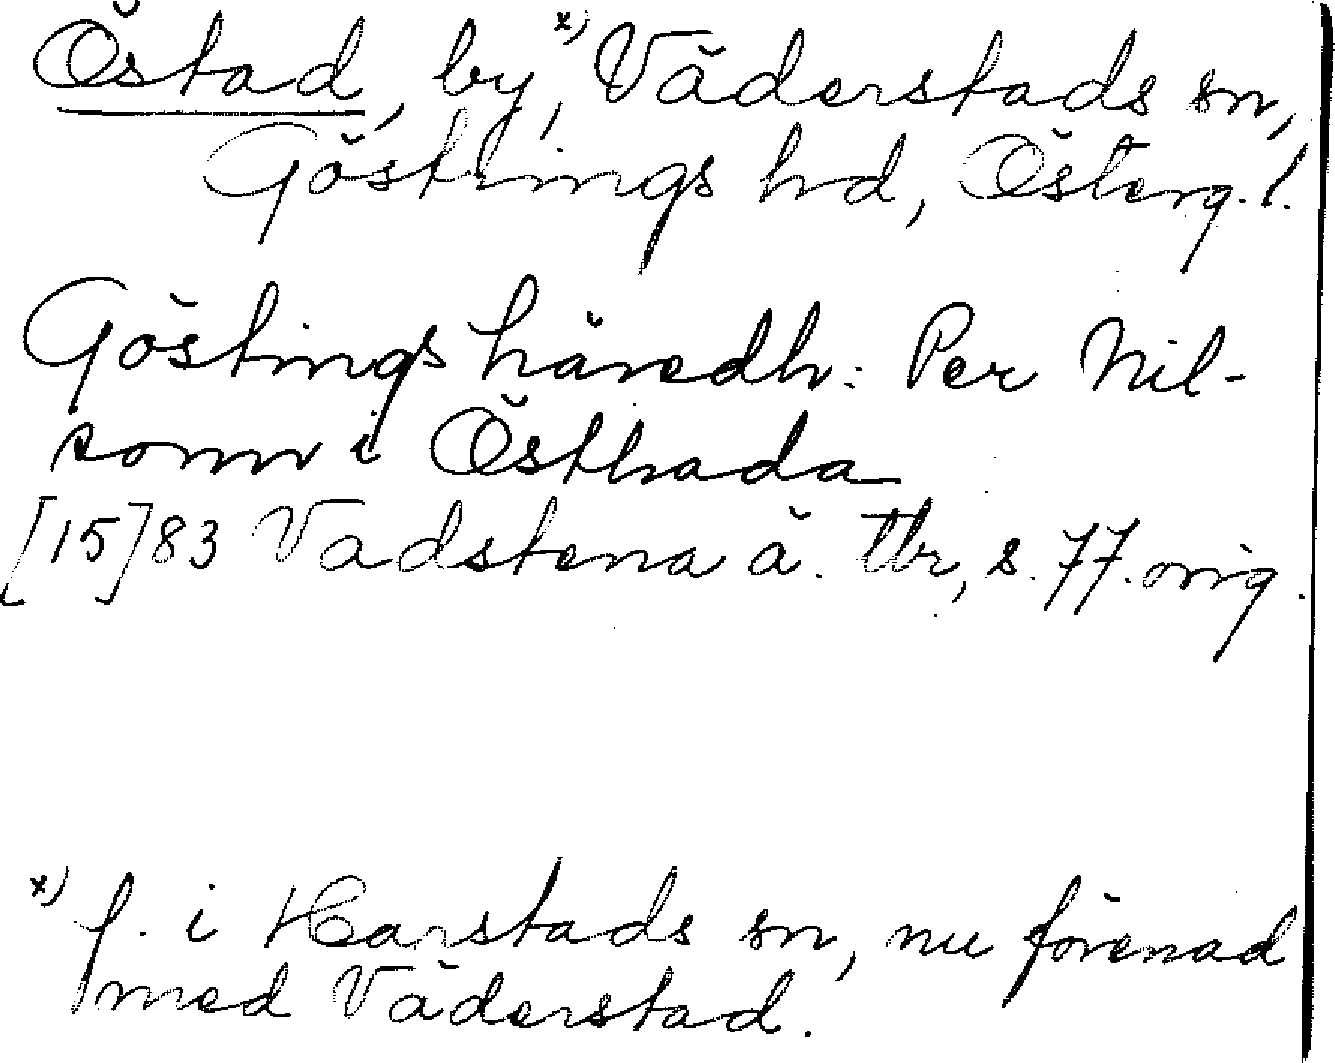 Östad, by,ˣ⁾ Väderstads sn,
Göstrings hd, Österg. l.
Göstings häredh: Per Nil-
sonn i Östhada
[15]83 Vadstena ä. tbr, s. 77. orig.
ˣ⁾ f. i Harstads sn, nu förenad
med Väderstad.